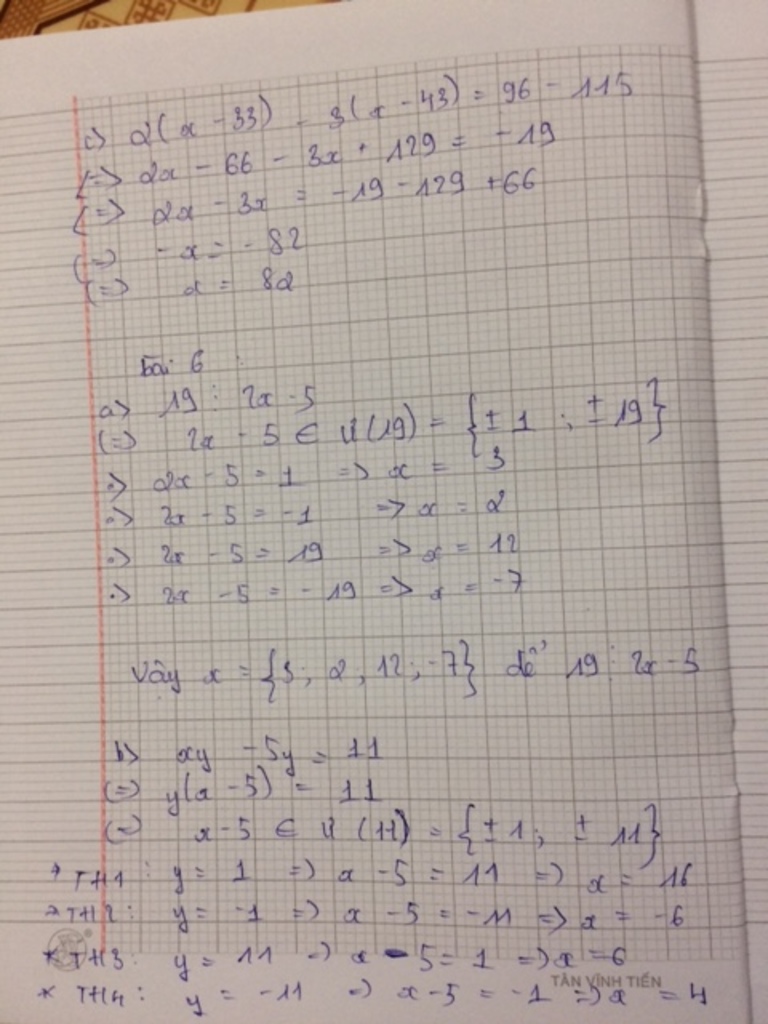 c) 2(x - 33) - 3(x - 43) = 96 - 115
(=) 2x - 66 - 3x + 129 = -19
(=) 2x - 3x = -19 - 129 + 66
(=) -x = -82
(=) x = 82
Bài 6 :
a) 19 ⋮ 2x - 5
(=) 2x - 5 ∈ Ư(19) = {± 1 ; ± 19}
.) 2x - 5 = 1 => x = 3
.) 2x - 5 = -1 => x = 2
.) 2x - 5 = 19 => x = 12
.) 2x - 5 = -19 => x = -7
Vậy x = {3 ; 2 ; 12 ; -7} để 19 ⋮ 2x - 5
b) xy - 5y = 11
(=) y(x - 5) = 11
(=) x - 5 ∈ Ư(11) = {± 1 ; ± 11}
* TH1 : y = 1 => x - 5 = 11 => x = 16
* TH2 : y = -1 => x - 5 = -11 => x = -6
* TH3 : y = 11 => x - 5 = 1 => x = 6
TÂN VĨNH TIẾN
* TH4 : y = -11 => x - 5 = -1 => x = 4